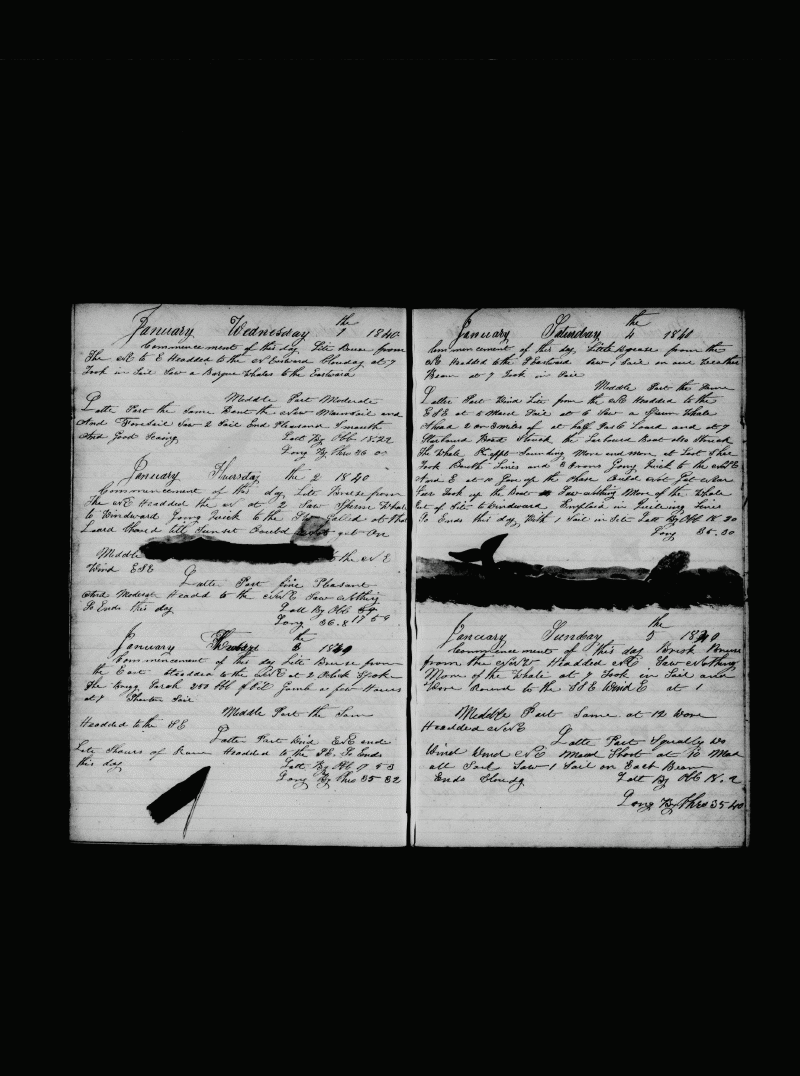 the
January Wednesday 1 1840
Commencement of this day Lite Breese from
The NE to E Headded to the N Eastward Clouday at 7
Took in Sail Saw a Whales to the Eastward
Meddle Part Moderate
Latter Part the Same Bent the New Mainsail and
And Foresail Saw 2 Sail End Pleasand Smouth
and Good Seaing Latt By Obb 18.22
Long By Chro 36 00
January Thursday the 2 1840
Commencement of this day Lite Breese from
The NE Headded the N at 2 Saw Sperm Whale
to Windward Going Quick to the
Laard Chaced till Sunset Coulsd Not get On
Meddle to the NE
Wind ESE
Latter Part fine Pleasant
and Headd to the NNE Saw Nothing
So Ends this day Latt By Obb
Long 36.8 17 59
the
January 3 1840
Commencement of this day Lite Breese from
the East Headded to the at 2 Oclock Spoke
The Brigg Sarah 250 bbl of Oil Gamb a few Hours
at 7 Shorten Sail
Meddle Part the Sam
Headded to the SE
Latter Part Wind ENE and
Lite Shours of Rain Headded to the SE. So Ends
this day Latt By Obb
Long By Chro 35 32
the
January Saturday 4 1840
Commencement of this day, Little Breese from the
NE Headded to the Eastward Saw 1 Sail on our Weather
Beam at 7 Took in Sail
Meddle Part the Same
Latter Part Wind Lite from the NE Headded to the
ESE at 5 Maed Sail at 6 Saw a Whale
Ahead 2 or 3 miles of at half Past 6 Loard and at 7
Starboard Boat Struck the Larboard Boat also Struck
The Whale Sounding More and more at Last She
Took Bouth Lines and 2 Going Quick to the NNE
And E at 10 Gave up the Chase Could Not Get Near
Took up the Boat Saw nothing More of the Whale
Out of Site to Windward Emploid in Lines
So Ends this day, With 1 Sail in Site Latt By Obb 18.20
Long 35.30
the
January Sunday 5 1840
Commencement of this day Brisk Breese
from the NNE Headded Saw Nothing
More of the Whale at 7 Took in Sail and
Wore Round to the SSE Wind E at 1
Meddle Part Same at 12 Wore
Headded NNE
Latter Part
Wind Wind NE Maed at 10 Maed
all Sail Saw 1 Sail on East Beam
Ends Cloudy Latt By Obb 18.2
Long By Chro 35 40